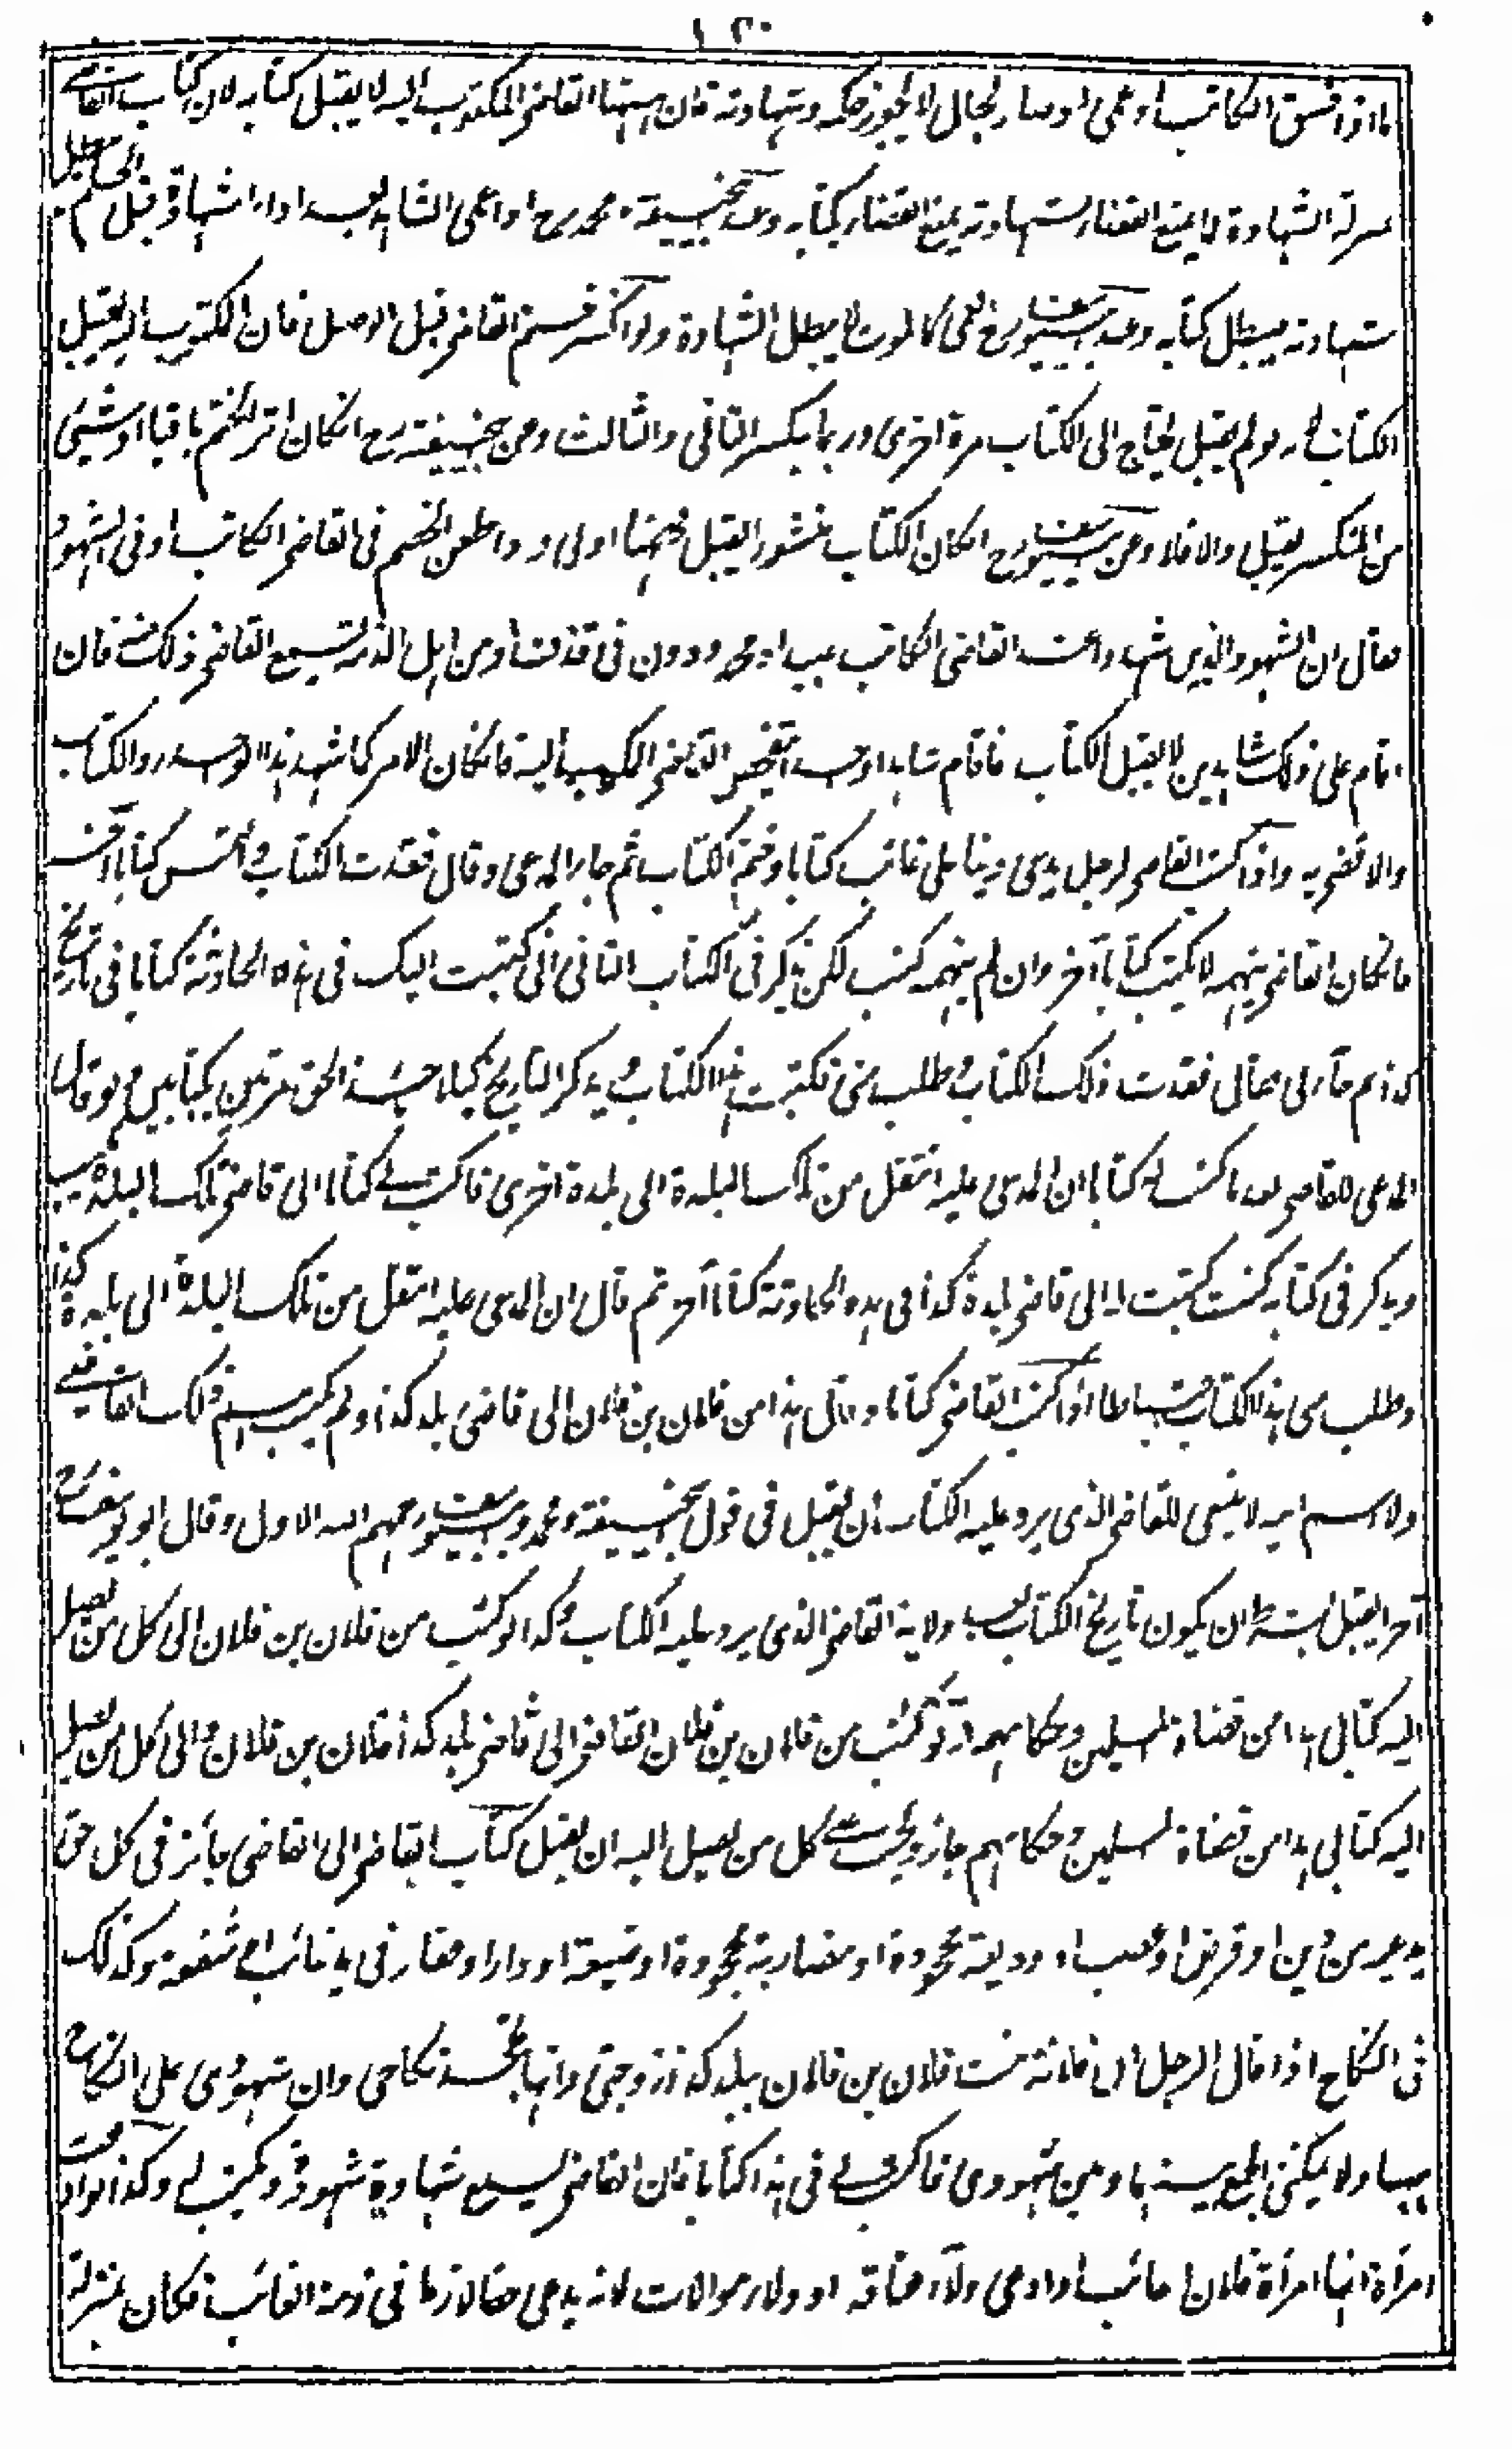 ١٣٠
ما اذا فسق الكاتب او عمى او صار بحال لا يجوز حكمه وشهادته فان ههنا القاضى المكتوب اليه لا يقبل كتابه لان كتاب القاضے
بمنزلة الشهادة فما يمنع القضاء بشهادته يمنع القضاء بكتابه وعند ابيحنيفة و محمد رح اذا عمى الشاهد بعد اداء الشهادة قبل الحكم تبطل
شهادته فيبطل كتابه وعند ابيوسف رح العمى كالموت لا يبطل الشهادة ولو انكسر ختم القاضى قبل الوصل فان المكتوب اليه يقبل
الكتاب لانه لو لم يقبل يحتاج الى الكتاب مرة اخرى وربما ينكسر الثانى والثالث وعن ابيحنيفة رح انكان اثر الختم باقيا او شيئى
من المنكسر يقبل والا فلا وعن ابيوسف رح انكان الكتاب منشورا يقبل فههنا اولى واذا طعن الخصم فى القاضى الكاتب او فى الشهود
فقال ان الشهود الذين شهدوا عند القاضى الكاتب عبيد او محدودون فى قذف او من اهل الذمة يسمع القاضى ذلك منه فان
اقام على ذلك شاهدين لا يقبل الكتاب فاقام شاهدا واحدا القاضى المكتوب اليه فانكان الامر كما شهد هذا الواحد رد الكتاب
والا قضى به واذا كتب القاضى لرجل يدعى دينا على غائب كتابا وختم الكتاب ثم جاء المدعى وقال فقدت الكتاب والتمس كتابا آخر
فانكان القاضى يتهمه لا يكتب كتابا آخر وان لم يتهمه كتب لكن يذكر فى الكتاب الثانى انى كتبت اليك فى هذه الحادثة كتابا فى تاريخ
كذا ثم جاء الى فقال فقدت ذلك الكتاب وطلب منى فكتبت هذا الكتاب و يذكر التاريخ كيلا يأخذ الحق مرتين بكتابين ولو قال
المدعى للقاضى بعد ما كتب له كتابا ان المدعى عليه انتقل من تلك البلدة الى بلدة اخرى فاكتب لے كتابا الى قاضى تلك البلدة يكتب
ويذكر فى كتابه كنت كتبت له الى قاضى بلدة كذا فى هذه الحادثة كتابا آخر ثم قال ان المدعى عليه انتقل من تلك البلدة الى بلدة كذا
وطلب منى هذا الكتاب احتياطا اذا كتب القاضى كتابا وقال هذا من فلان بن فلان الى قاضى بلد كذا ولم يكتب اسم ذلك القاضے
ولا اسم ابيه لا ينبغى للقاضى الذى يرد عليه الكتاب ان يقبل فى قول ابيحنيفة ومحمد وابيوسف رحمهم الله الاول وقال ابو يوسف رح
آخرا يقبل بشرط ان يكون تاريخ الكتاب بعد ولاية القاضى الذى يرد عليه الكتاب وكذا لو كتب من فلان بن فلان الى كل من يصل
اليه كتابى هذا من قضاة المسلمين وحكامهم ولو كتب من فلان بن فلان القاضى الى قاضى بلد كذا فلان بن فلان والى كل من يصل
اليه كتابى هذا من قضاة المسلمين وحكامهم جاز ويجب على كل من يصل اليه ان يقبل كتاب القاضى الى القاضى جائز فى كل حق
يدعيه من دين او قرض او غصب او وديعة مجحودة او مضاربة مجحودة او ضيعة او دار او عقار فى يد غائب او شفعة وكذلك
فى النكاح اذا قال الرجل ان فلانة بنت فلان بن فلان ببلد كذا زوجتى وانها تجحد نكاحى وان شهودى على النكاح
ههنا ولا يمكننى الجمع بينها وبين شهودى فاكتب لے فى هذا كتابا فان القاضى يسمع شهادة شهوده ويكتب له وكذا لو ادعت
امرأة انها امرأة فلان الغائب او ادعى ولاء عتاقه او ولاء موالات لانه يدعى حقا لازما فى ذمة الغائب فكان بمنزلة